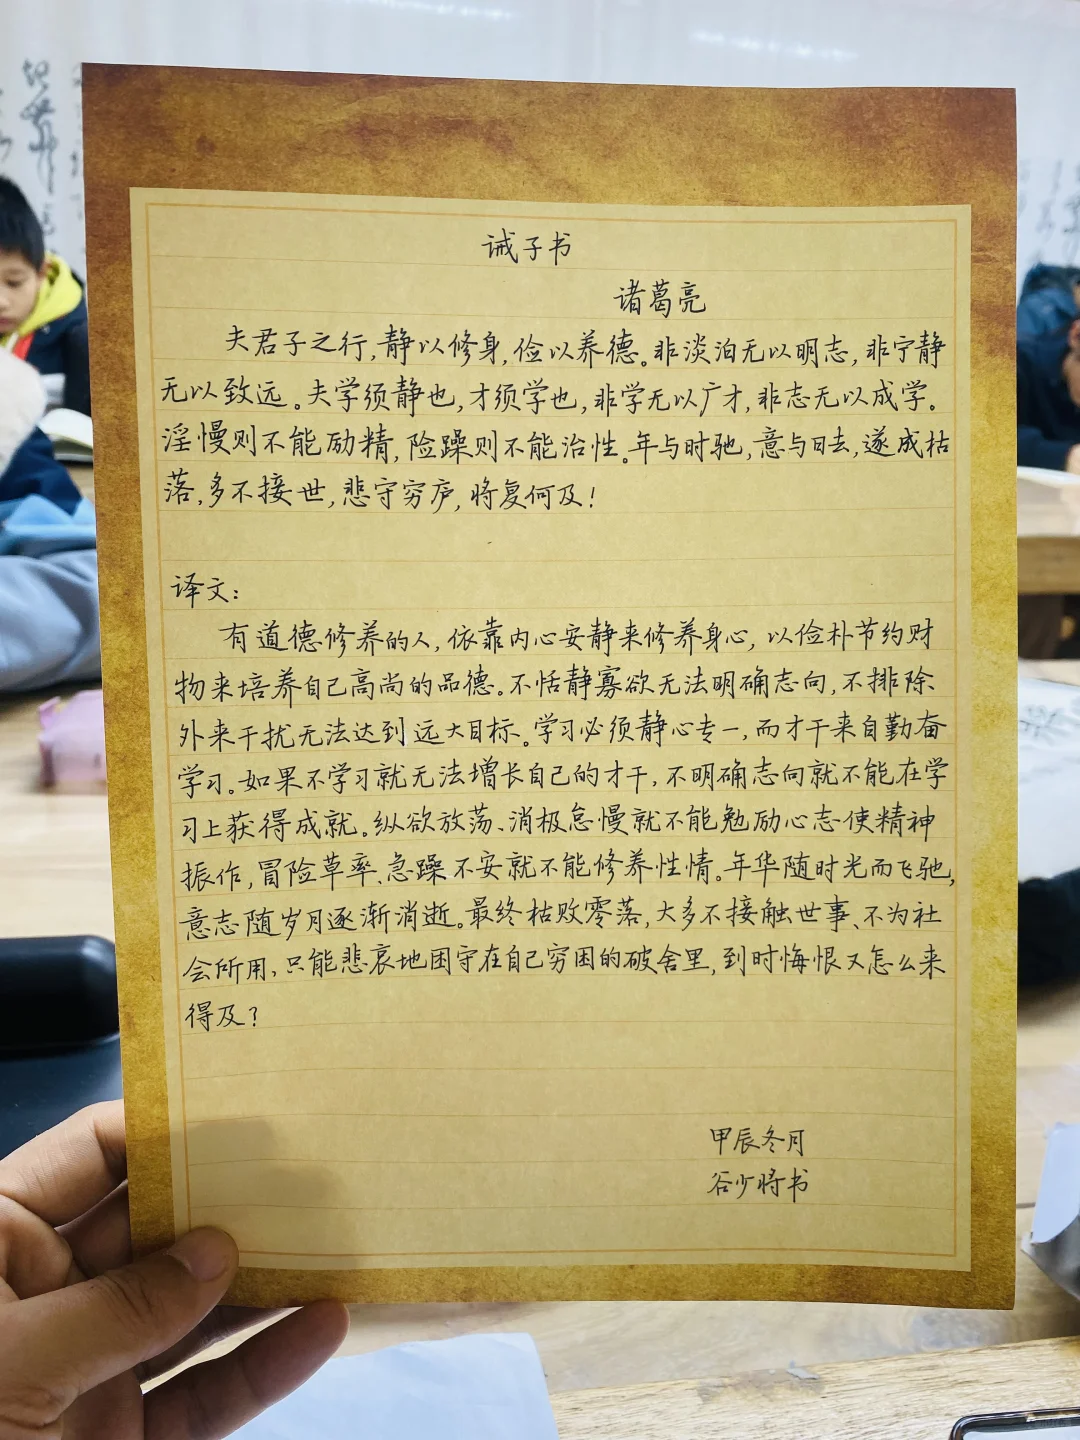 诫子书
诸葛亮
夫君子之行,静以修身,俭以养德。非淡泊无以明志,非宁静
无以致远。夫学须静也,才须学也,非学无以广才,非志无以成学。
淫慢则不能励精,险躁则不能治性。年与时驰,意与日去,遂成枯
落,多不接世,悲守穷庐,将复何及!
译文:
有道德修养的人,依靠内心安静来修养身心,以俭朴节约财
物来培养自己高尚的品德。不恬静寡欲无法明确志向,不排除
外来干扰无法达到远大目标。学习必须静心专一,而才干来自勤奋
学习。如果不学习就无法增长自己的才干,不明确志向就不能在学
习上获得成就。纵欲放荡、消极怠慢就不能勉励心志使精神
振作,冒险草率、急躁不安就不能修养性情。年华随时光而飞驰,
意志随岁月逐渐消逝。最终枯败零落,大多不接触世事、不为社
会所用,只能悲哀地困守在自己穷困的破舍里,到时悔恨又怎么来
得及?
甲辰冬月
谷少将书